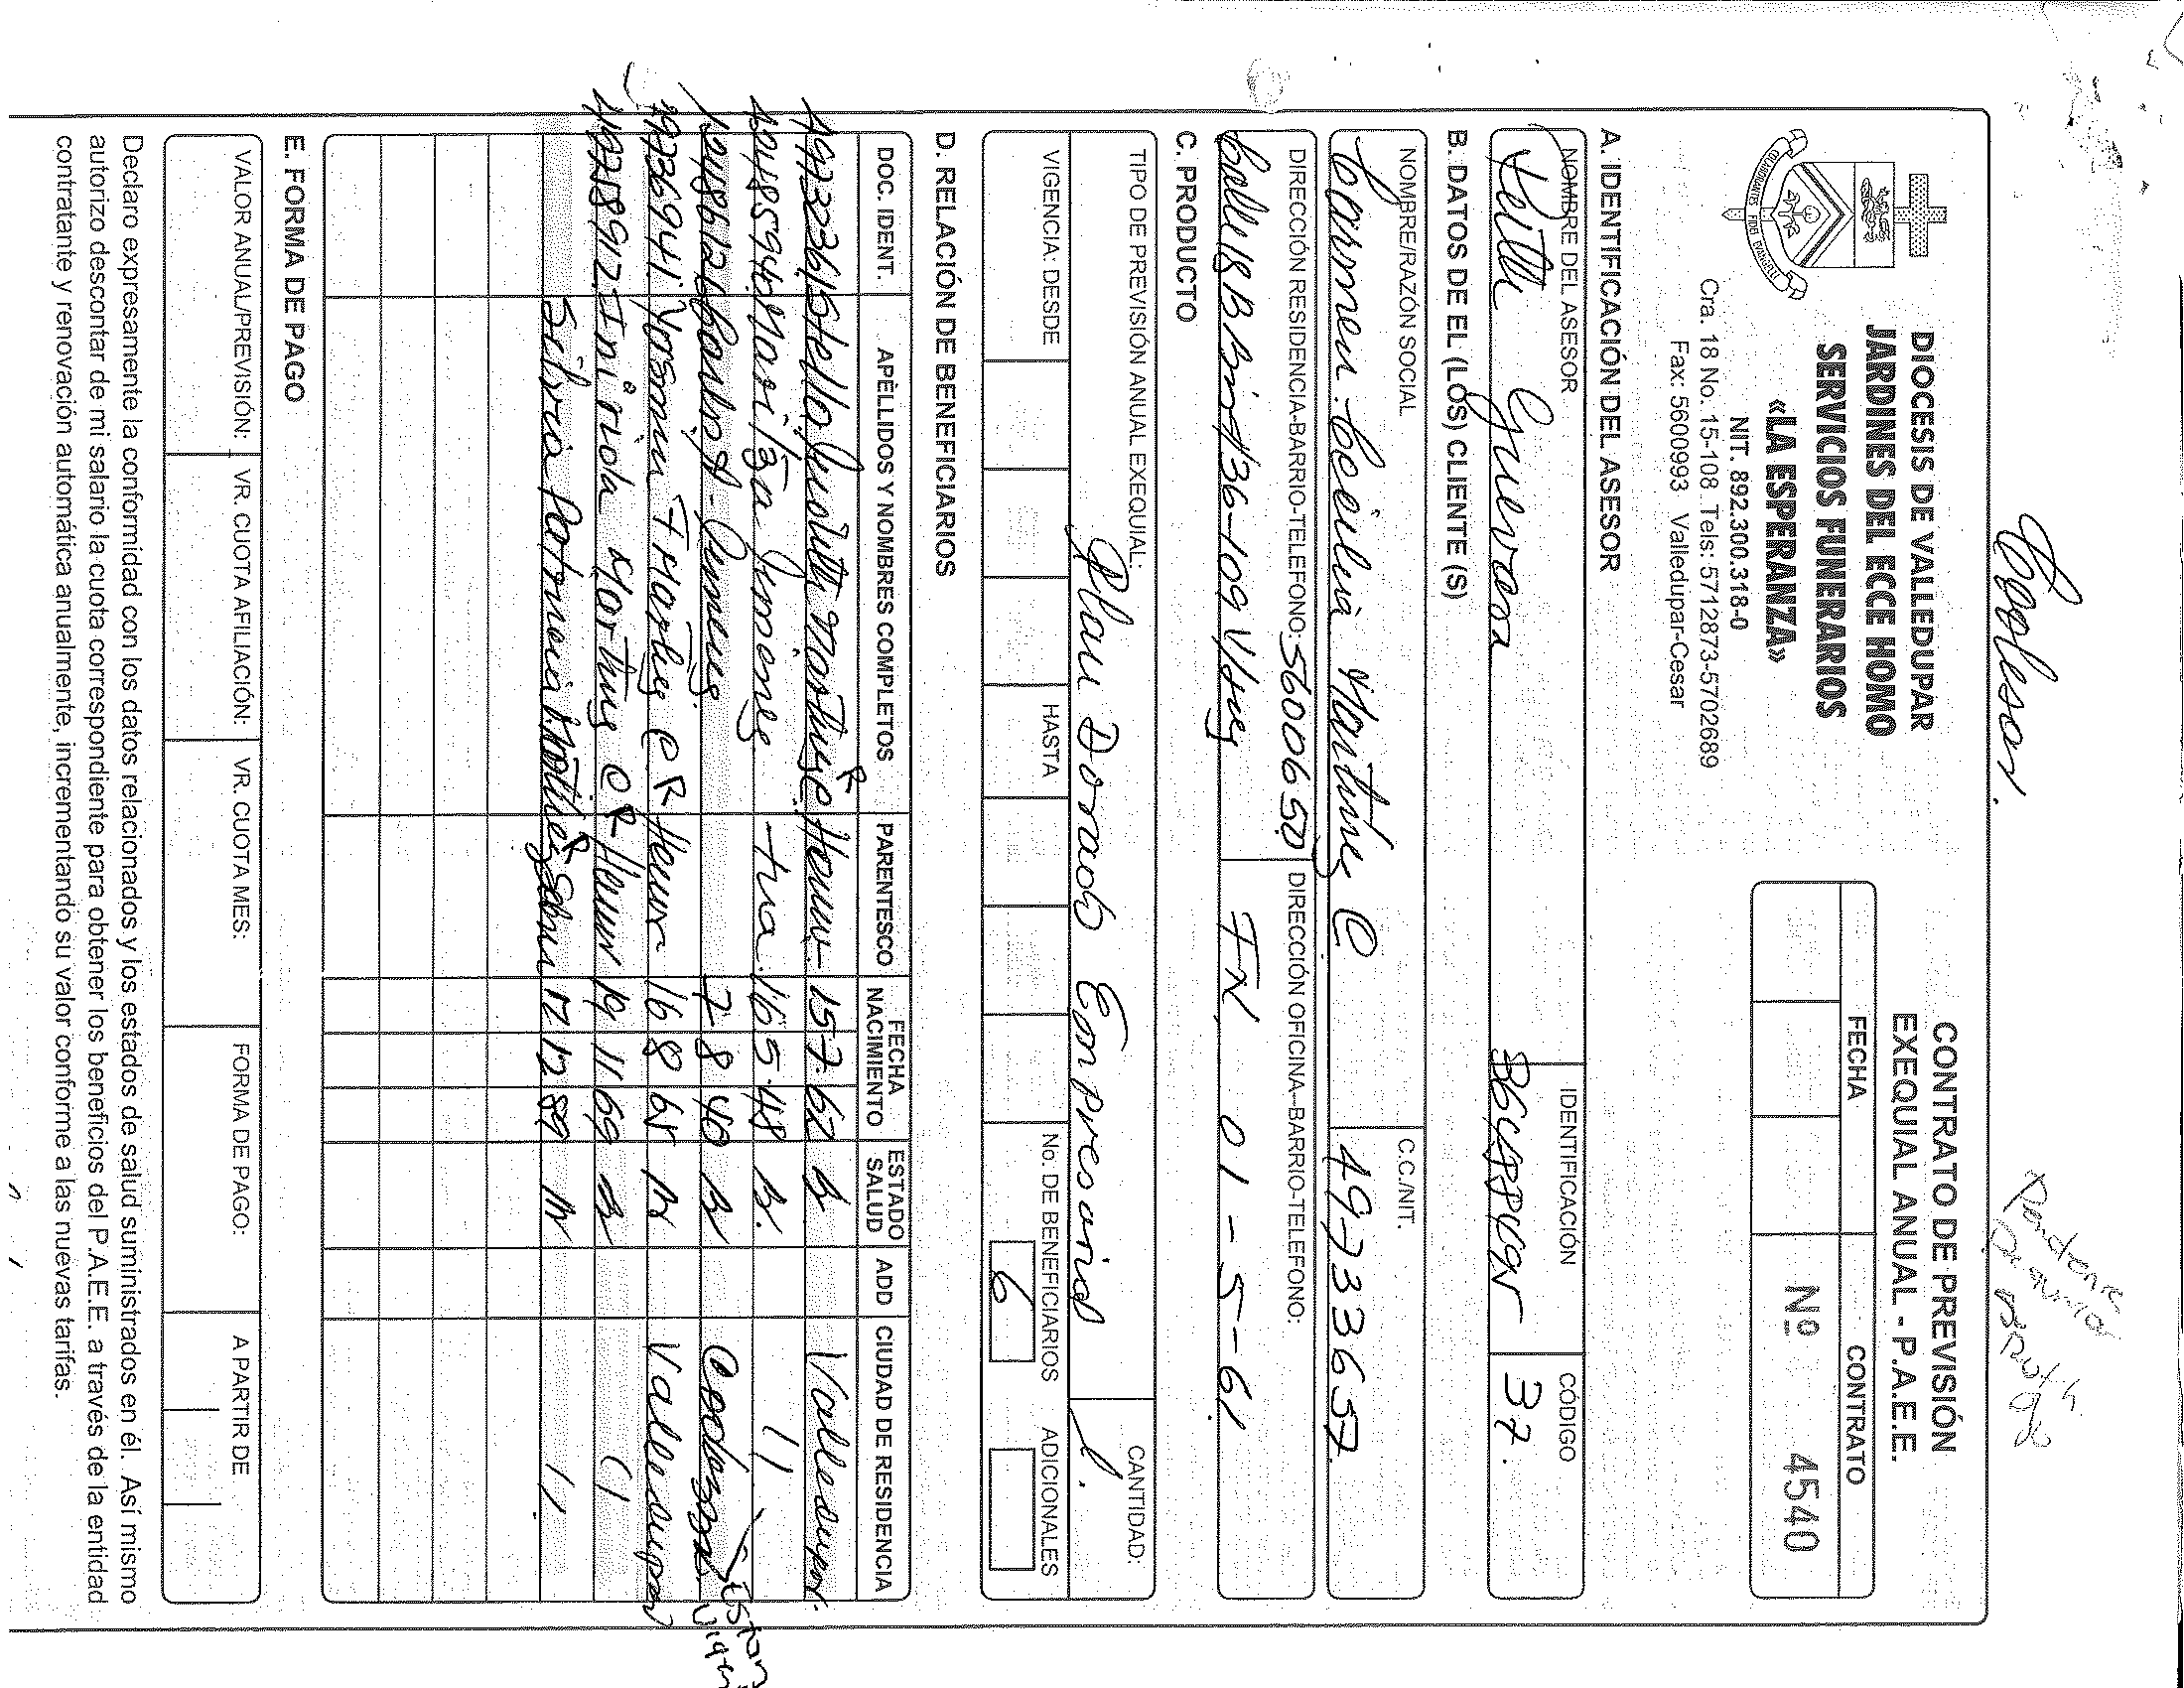 Coolesar.
DIOCESIS DE VALLEDUPAR
JARDINES DEL ECCE HOMO
SERVICIOS FUNERARIOS
«LA ESPERANZA»
NIT. 892.300.318-0
Cra. 18 No. 15-108 Tels: 5712873-5702689
Fax: 5600993 Valledupar-Cesar
CONTRATO DE PREVISIÓN
EXEQUIAL ANUAL - P.A.E.E.
FECHA CONTRATO
Nº 4540
A. IDENTIFICACIÓN DEL ASESOR
NOMBRE DEL ASESOR IDENTIFICACIÓN CÓDIGO
Guevara 37.
B. DATOS DE EL (LOS) CLIENTE (S)
NOMBRE/RAZÓN SOCIAL C.C./NIT.
Carmen Cecilia Martinez C 49733657
DIRECCIÓN RESIDENCIA-BARRIO-TELEFONO: 5600650 DIRECCIÓN OFICINA-BARRIO-TELEFONO:
Calle 18B Bis #36-109 FN 01-5-61
C. PRODUCTO
TIPO DE PREVISIÓN ANUAL EXEQUIAL: CANTIDAD:
Plan Dorado Empresarial 1.
VIGENCIA: DESDE HASTA No. DE BENEFICIARIOS 6 ADICIONALES
D. RELACIÓN DE BENEFICIARIOS
DOC. IDENT. APELLIDOS Y NOMBRES COMPLETOS PARENTESCO FECHA NACIMIENTO ESTADO SALUD ADD CIUDAD DE RESIDENCIA
Martinez C R 15 7 62 B Valledupar.
Jimenez tia 16 5 48 B. 11
Jimenez 7 8 40 B
49736941 Yasmin Martinez C R 16 8 65 B Valledupar
49758912 Inirida Martinez C R 19 11 69 B 11
Silvia Patricia 17 12 89 B 11
E. FORMA DE PAGO
VALOR ANUAL/PREVISIÓN: VR. CUOTA AFILIACIÓN: VR. CUOTA MES: FORMA DE PAGO: A PARTIR DE
Declaro expresamente la conformidad con los datos relacionados y los estados de salud suministrados en él. Así mismo
autorizo descontar de mi salario la cuota correspondiente para obtener los beneficios del P.A.E.E. a través de la entidad
contratante y renovación automática anualmente, incrementando su valor conforme a las nuevas tarifas.